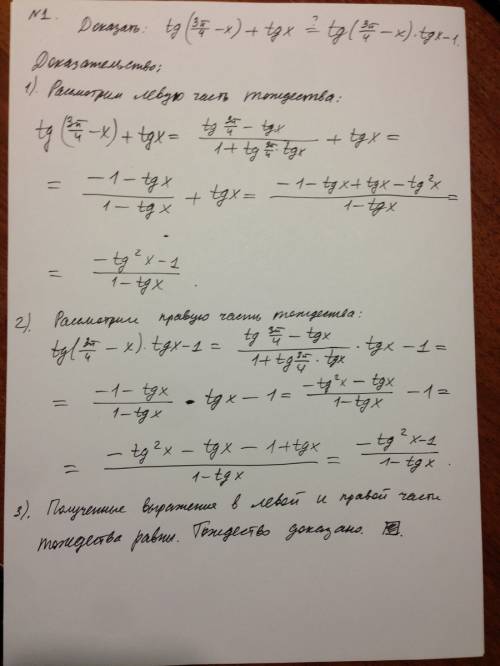 №1. Доказать: tg(3π/4 - x) + tgx ?= tg(3π/4 - x)·tgx-1.
Доказательство;
1). Рассмотрим левую часть тождества:
tg(3π/4 - x) + tgx = (tg 3π/4 - tgx)/(1 + tg 3π/4 · tgx) + tgx =
= (-1 - tgx)/(1 - tgx) + tgx = (-1 - tgx + tgx - tg²x)/(1 - tgx) =
= (-tg²x - 1)/(1 - tgx).
2). Рассмотрим правую часть тождества:
tg(3π/4 - x)·tgx-1 = (tg 3π/4 - tgx)/(1 + tg 3π/4 · tgx) · tgx - 1 =
= (-1 - tgx)/(1 - tgx) · tgx - 1 = (-tg²x - tgx)/(1 - tgx) - 1 =
= (-tg²x - tgx - 1 + tgx)/(1 - tgx) = (-tg²x-1)/(1 - tgx).
3). Полученные выражения в левой и правой части
тождества равны. Тождество доказано.